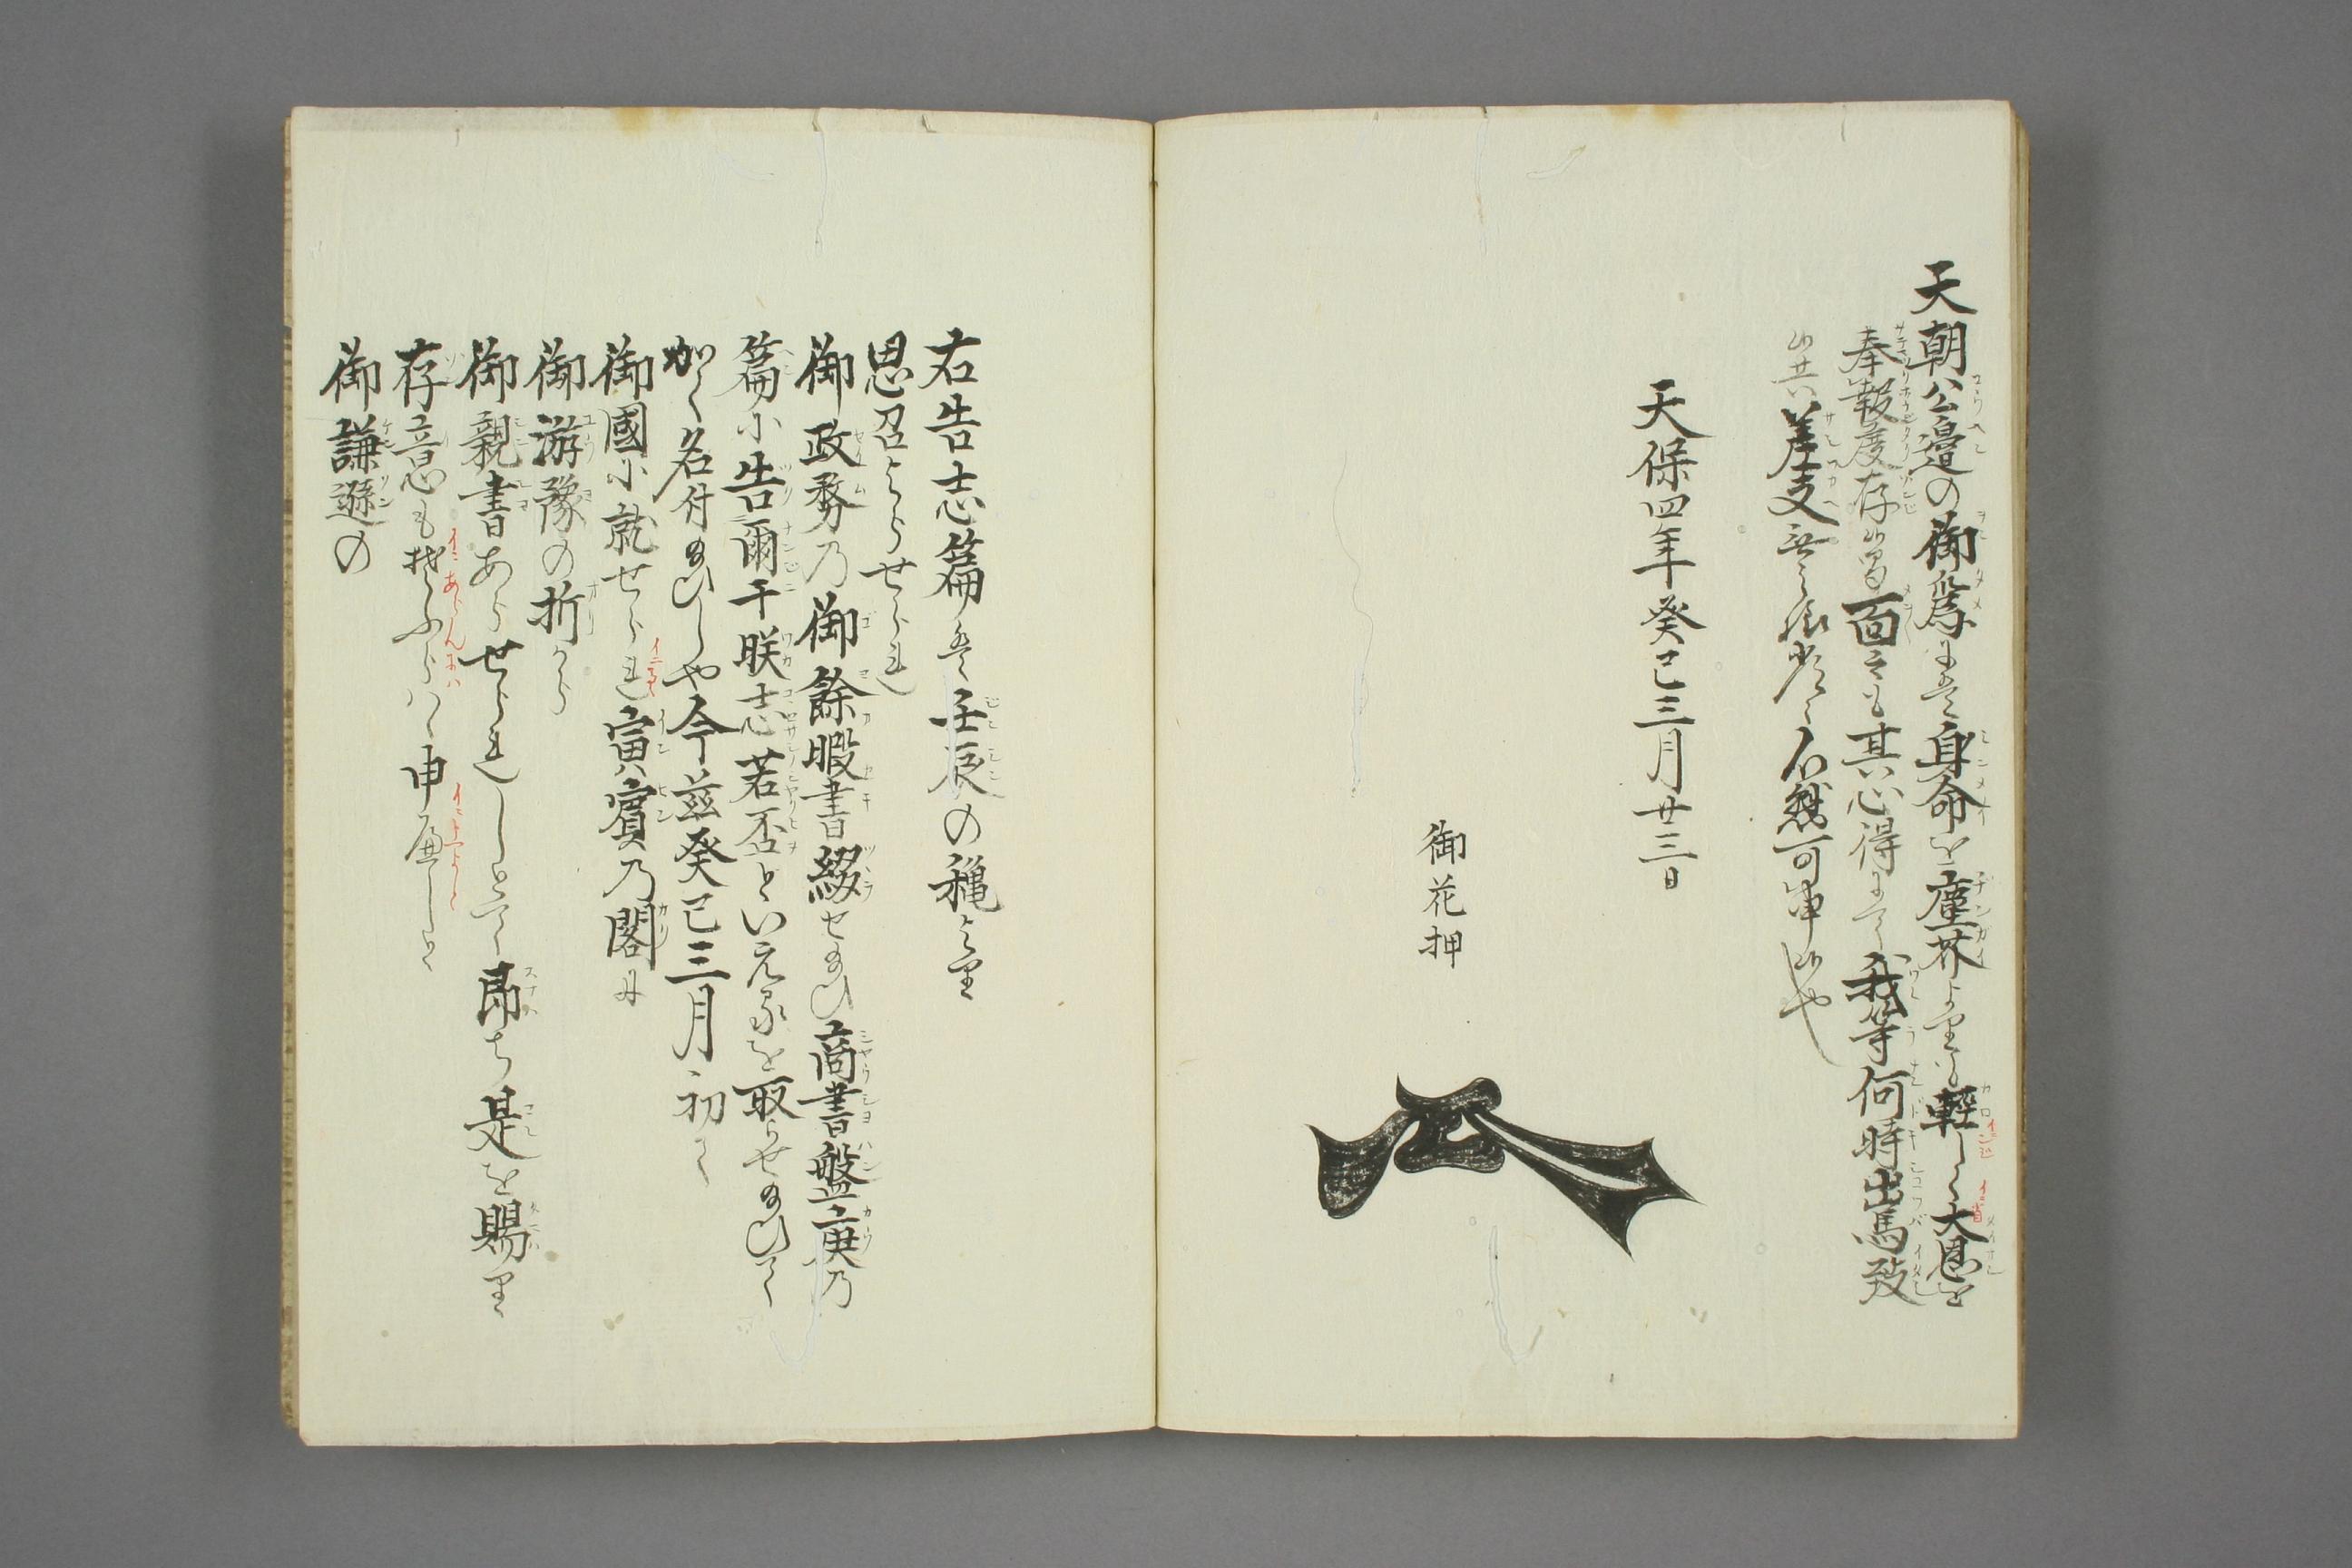 天朝公邊の御爲には身命を塵芥よりも輕しく大恩を
奉報度存候間面々も其心得にて我等何時出馬致
候共差支無之樣常々心懸可申候也
天保四年癸巳三月廿三日
御花押
右告志篇は壬辰の穐より
思召よらせられ
御政務乃御餘暇書綴せ給ひ商書盤庚乃
篇に告爾于朕志若否といえるを取らせ給ひて
かく名付給ひしや今茲癸巳三月初て
御國に就せられ寅賓乃閣に
御游豫の折から
御親書あらせられしとて即ち是を賜りて
存意も
御謙遜の